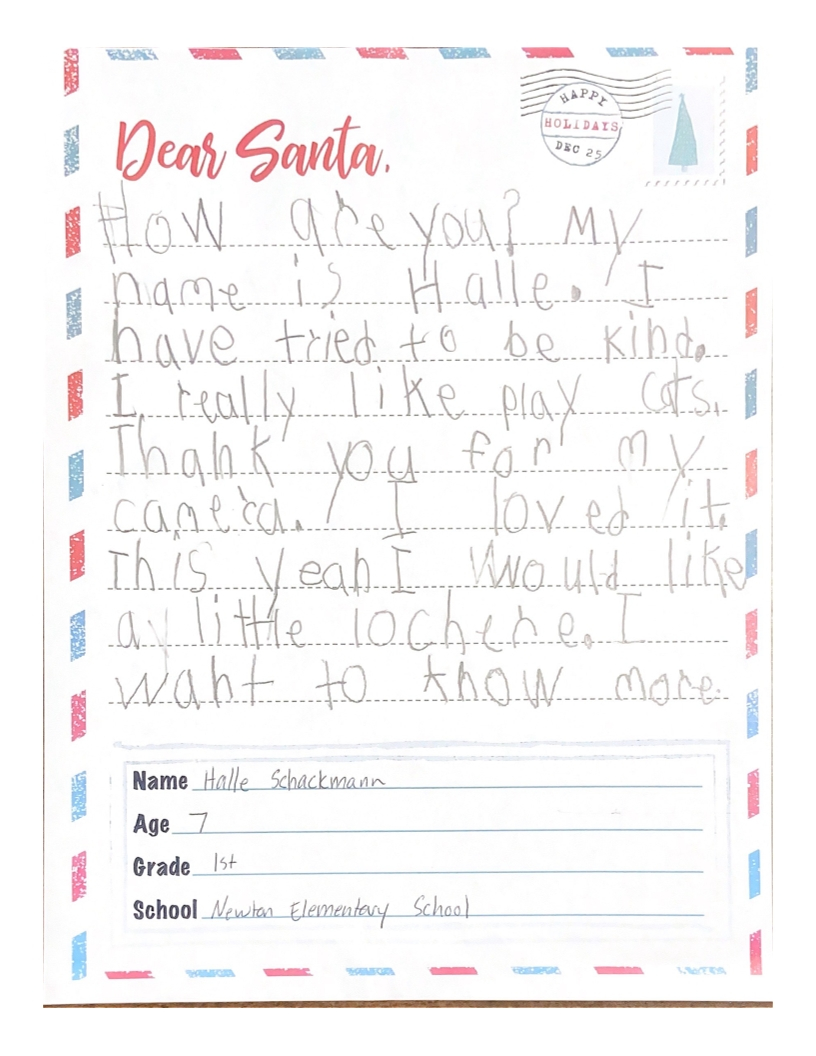 HAPPY
HOLIDAYS
DEC 25
Dear Santa,
How are you? My
name is Halle. I
have tried to be kind.
I really like play cats.
Thank you for my
camera. I loved it.
This year I would like
a little
want to know more.
Name Halle Schackmann
Age 7
Grade 1st
School Newton Elementary School